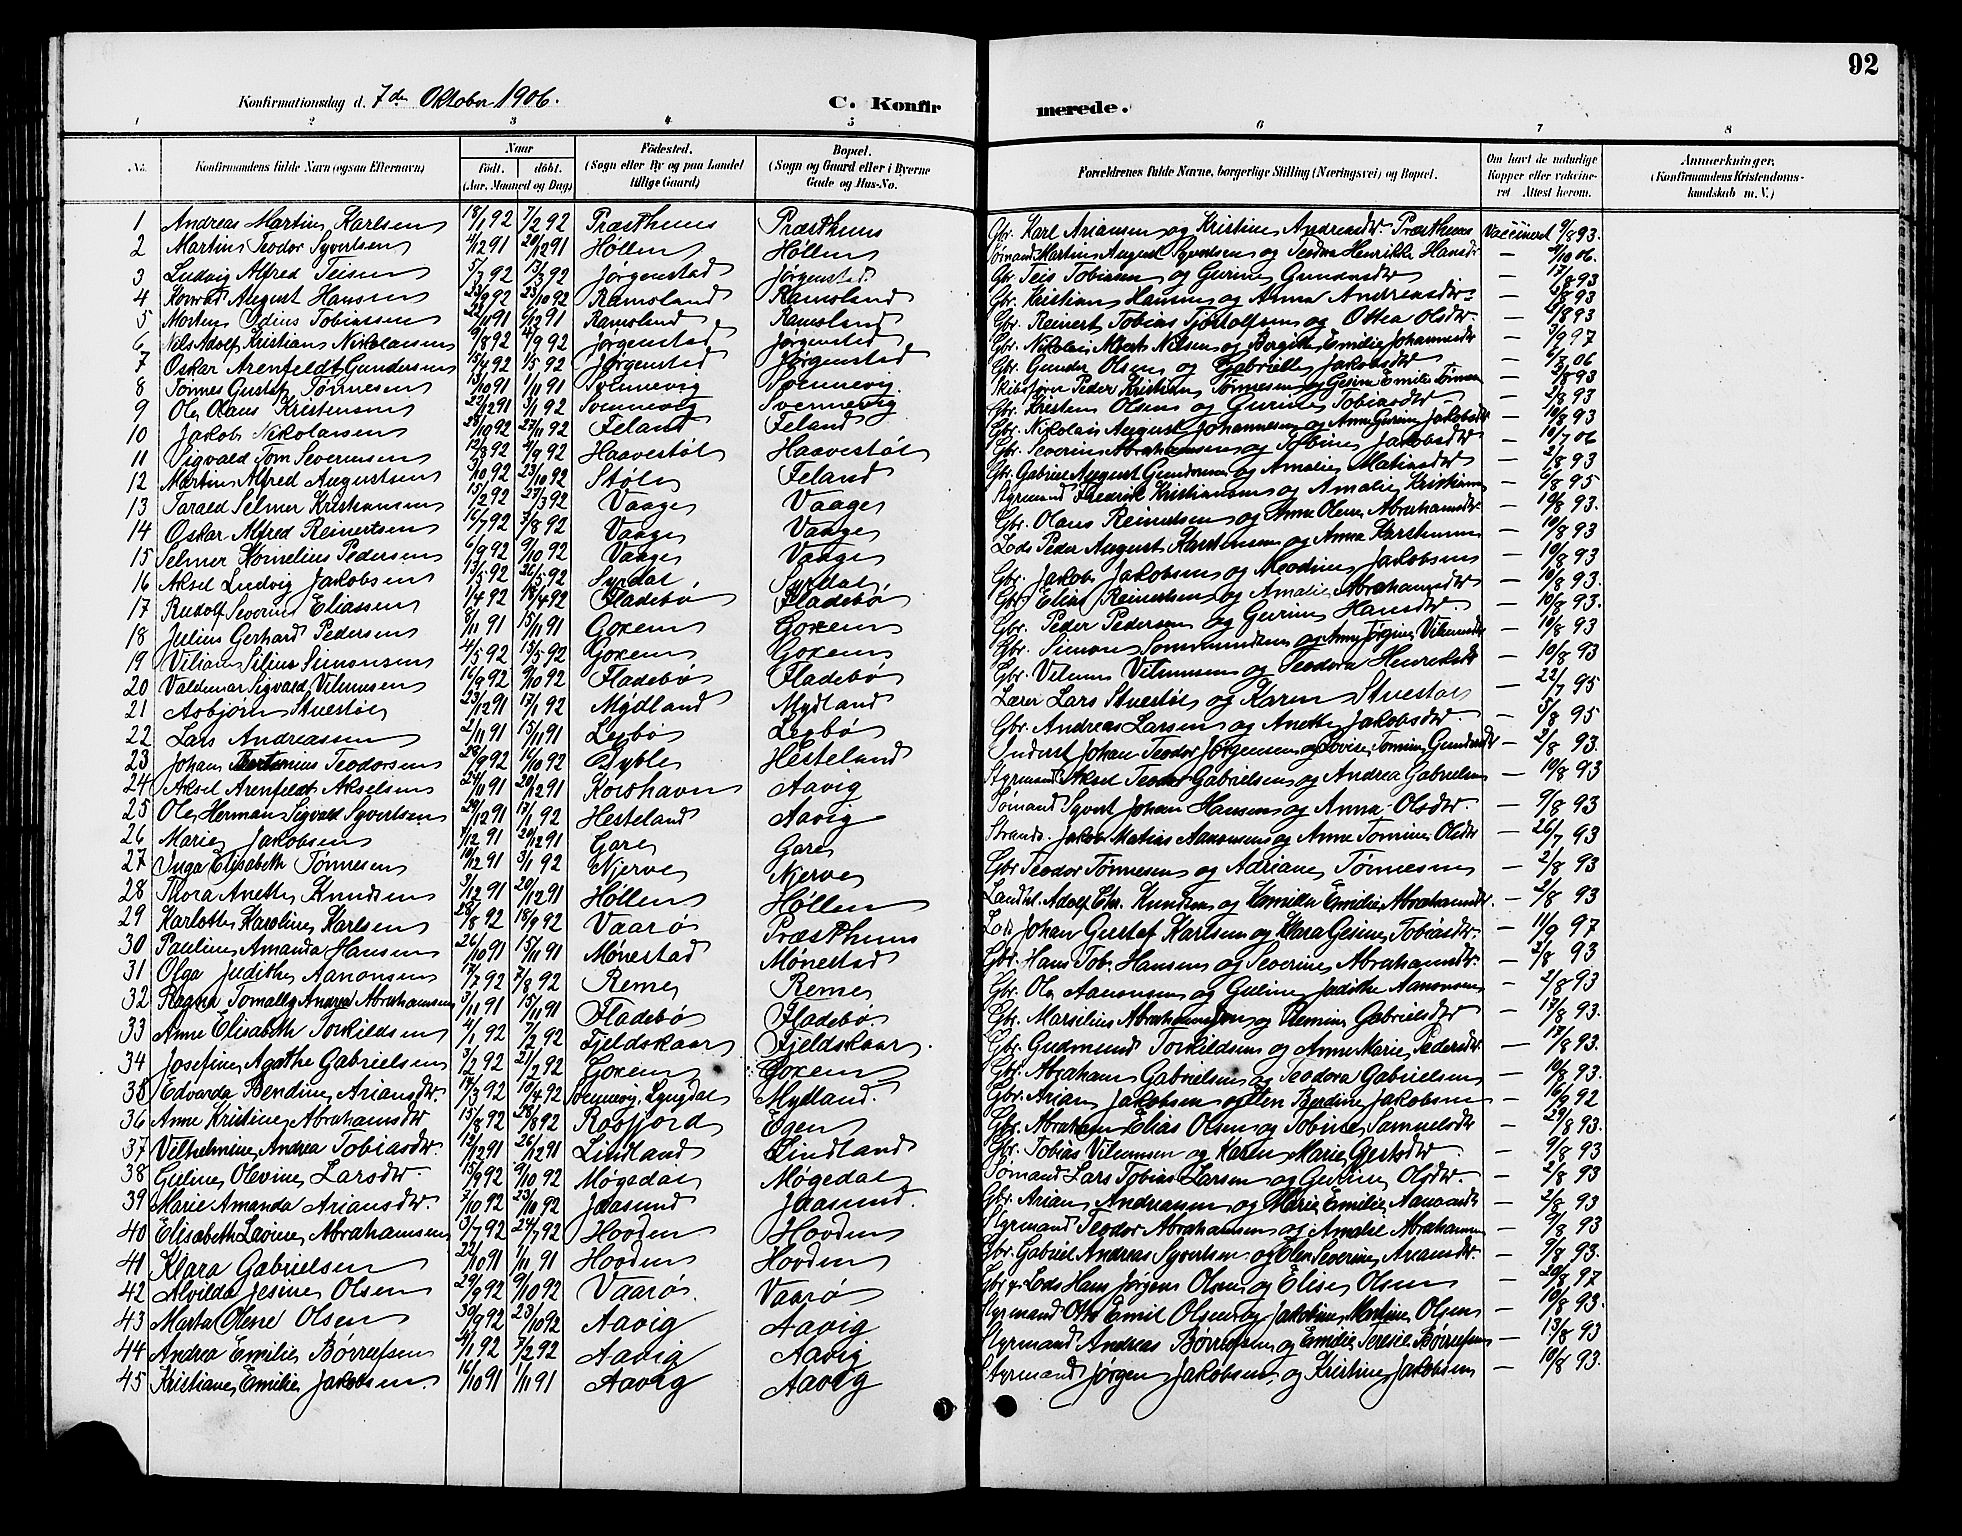 92
Konfirmationsdag d. 7de Oktober 1906.
C. Konfirmerede.
1 2 3 4 5 6 7 8
No. Konfirmandens fulde Navn (ogsaa Efternavn) Naar Født. døbt. (Aar, Maaned og Dag) Fødested. (Sogn eller By og paa Landet tillige Gaard) Bopæl. (Sogn og Gaard eller i Byerne Gade og Hus-No. Forældrenes fulde Navne, borgerlige Stilling (Næringsvei) og Bopæl. Om havt de naturlige Kopper eller vakcineret Attest herom. Anmærkninger. (Konfirmandens Kristendomskundskab m. V.)
1 Andreas Martin Karlsen 18/1 92 7/2 92 Præsthuus Præsthuus Gbr. Karl Ariansen og Kristine Andreasdr Præsthuus vaccineret 9/8 93.
2 Martin Teodor Syvertsen /12 91 20/12 91 Høllen Høllen Sømand Martin August Syvertsen og Teodora Henrikke Hansdr — /10 06.
3 Ludvig Alfred Teisen 5/2 92 13/3 92 Jørgenstad Jørgenstad Gbr. Teis Tobiassen og Gurine Gundersdr — 17/8 93
4 Konrad August Hansen 23/9 92 23/10 92 Ramsland Ramsland Gbr. Kristian Hansen og Anna Andreasdr — /8 93
5 Morten Odius Tobiassen 22/11 91 6/12 91 Ramsland Ramsland Gbr. Reinert Tobias Tjøstolfsen og Ottea Olsdr — 2/8 93
6 Nils Adolf Kristian Nikolaisen 9/8 92 4/9 92 Jørgenstad Jørgenstad Gbr. Nikolai Albert Nilsen og Birgitte Emilie Johannesdr — 3/9 97
7 Oskar Arenfeldt Gundersen 15/4 92 1/5 92 Jørgenstad Jørgenstad Gbr. Gunder Olsen og Gabrielle Jakobsdr — 6/7 06
8 Tønnes Gustav Tønnesen 13/10 91 1/11 91 Svennevig Svennevig Skibstøm. Peder Kristian Tønnesen og Gesine Emilie Tønnesen — 2/8 93
9 Ole Olaus Kristensen 22/12 91 3/1 92 Svennevig Svennevig Gbr. Kristen Olsen og Gurine Tobiasdr — 2/8 93
10 Jakob Nikolaisen 28/10 92 27/11 92 Feland Feland Gbr. Nikolai August Johannesen og Anne Gurine Jakobsdr — 10/8 93
11 Sigvald Tom Severinsen 12/8 92 4/9 92 Haavestøl Haavestøl Gbr. Severin Abrahamsen og Jakobsdr — 10/7 06
12 Martin Alfred Augustsen 3/10 92 23/10 92 Støle Feland Gbr. Gabriel August Gundersen og Amalie Matiasdr — 2/8 93
13 Tarald Selmer Kristiansen 15/2 92 27/3 92 Vaage Vaage Styrmand Fredrik Kristiansen og Amalie Kristiansen — 9/8 95
14 Oskar Alfred Reinertsen 16/7 92 7/8 92 Vaage Vaage Gbr. Olaus Reinertsen og Anne Olene Abrahamsdr — 10/8 93.
15 Selmer Kornelius Pedersen 6/9 92 9/10 92 Vaage Vaage Lods Peder August Karstensen og Anna Karstensen — 10/8 93
16 Aksel Ludvig Jakobsen 13/5 92 26/5 92 Syrdal Syrdal Gbr. Jakob Jakobsen og Jakobsen — 10/8 93
17 Rudolf Severin Eliassen 1/4 92 18/4 92 Fladebø Fladebø Gbr. Elias Reinertsen og Amalie Abrahamsdr — 10/8 93.
18 Julius Gerhard Pedersen 8/11 91 15/11 91 Goxem Goxem Gbr. Peder Pedersen og Gurine Hansdr. — 10/8 93.
19 Viliam Silius Simonsen 4/5 92 15/5 92 Goxem Goxem Gbr. Simon Sommundsen og Anne Jørgine Vilumsdr — 10/8 93
20 Valdemar Sigvald Vilumsen 16/9 92 9/10 92 Fladebø Fladebø Gbr. Vilum Vilumsen og Teodora Henriksdr — 10/8 93
21 Asbjørn Stuestøl 23/12 91 17/1 92 Mydland Mydland Lærer Lars Stuestøl og Karen Stuestøl — 22/7 95
22 Lars Andreassen 2/11 91 15/11 91 Legbø Legbø Gbr. Andreas Larsen og Anette Jakobsdr. — 5/8 95
23 Johan Teodorsen 28/9 92 16/10 92 Dyble Hesteland Inderst Johan Teodor Jørgensen og Lovise Tomine Gundersdr — 2/8 93.
24 Aksel Arenfeldt Akselsen 24/10 91 20/12 91 Korshavn Aavig Styrmand Aksel Teodor Gabrielsen og Andrea Gabrielsen — 10/8 93
25 Ole Herman Sigvald Syvertsen 29/12 91 17/1 92 Hesteland Aavig Sømand Syvert Johan Hansen og Anna Olsdr. — 9/8 93
26 Marie Jakobsen 4/12 91 20/12 91 Gare Gare Strands. Jakob Matias Aanonsen og Anne Tomine Olsdr — 26/7 93
27 Inga Elisabeth Tønnesen 10/12 91 3/1 92 Njerve Njerve Gbr Teodor Tønnesen og Adriane Tønnesen — 2/8 93
28 Thora Anette Knudsen 3/12 91 20/12 91 Høllen Høllen Landh. Adolf Chr. Knudsen og Kamilla Emilie Abrahamsdr. — 2/8 93
29 Karlotte Karoline Karlsen 28/8 92 18/9 92 Vaarø Præsthuus Lods Johan Gustaf Karlsen og Klara Gesine Tobiasdr. — 11/9 97
30 Pauline Amanda Hansen 26/10 91 15/11 91 Mønestad Mønestad Gbr. Hans Tob. Hansen og Severine Abrahamsdr. — 2/8 93
31 Olga Judithe Aanonsen 17/7 92 7/8 92 Reme Reme Gbr. Ole Aanonsen og Guline Judithe Aanonsen — 2/8 93
32 Ragna Tomalle Andrea Abrahamsen 3/11 91 15/11 91 Fladebø Fladebø. Gbr. Marsilius Abrahamsen og Gabrielsdr — 17/8 93.
33 Anne Elisabeth Torkildsen 4/1 92 7/2 92 Fjeldskaar Fjeldskaar Gbr. Gudmund Torkildsen og Anne Marie Pedersdr — 17/8 93.
34 Josefine Agathe Gabrielsen 3/2 92 21/2 92 Goxem Goxem Gbr. Abraham Gabrielsen og Teodora Gabrielsen — 10/8 93.
35 Edvarda Bendine Ariansdr. 14/3 92 10/4 92 Svennevig, Lyngdal Mydland. Gbr. Arian Jakobsen og Elen Berdine Jakobsen — 16/9 92
36 Anne Kristine Abrahamsdr 15/8 92 28/8 92 Rosfjord Egen Gbr. Abraham Elias Olsen og Tobine Samuelsdr — 29/8 93.
37 Vilhelmine Andrea Tobiasdr. 12/12 91 26/12 91 Lindland Lindland Gbr. Tobias Vilumsen og Karen Marie Gertsdr — 9/8 93
38 Guline Olevine Larsdr. 15/9 92 9/10 92 Møgedal Møgedal Sømand Lars Tobias Larsen og Gurine Olsdr. — 2/8 93
39 Marie Amanda Ariansdr. 2/10 92 23/10 92 Jaasund Jaasund. Gbr. Arian Andreassen og Marie Emilie Aanonsdr — 2/8 93
40 Elisabeth Lavine Abrahamsen 3/7 92 24/7 92 Hovden Hovden Styrmand Teodor Abrahamsen og Amalie Abrahamsen — 9/8 93
41 Klara Gabrielsen 22/10 91 1/11 91 Hovden Hovden Gbr. Gabriel Andreas Syvertsen og Elen Severine Ariansdr. — 9/8 93.
42 Alvilda Jesine Olsen 29/9 92 9/10 92 Vaarø. Vaarø Gbr. & Lods Hans Jørgen Olsen og Elise Olsen — 20/8 97
43 Marta Olene Olsen 30/9 92 23/10 92 Aavig Aavig Styrmand Otto Emil Olsen og Jakobine Martine Olsen — 10/8 93.
44 Andrea Emilie Børrefsen 4/1 92 7/2 92 Aavig Aavig Styrmand Andreas Børrefsen og Emilie Teresie Børrefsen — 13/8 93
45 Kristiane Emilie Jakobsen. 16/10 91 1/11 91 Aavig Aavig Styrmand Jørgen Jakobsen og Kristine Jakobsen — 10/8 93.